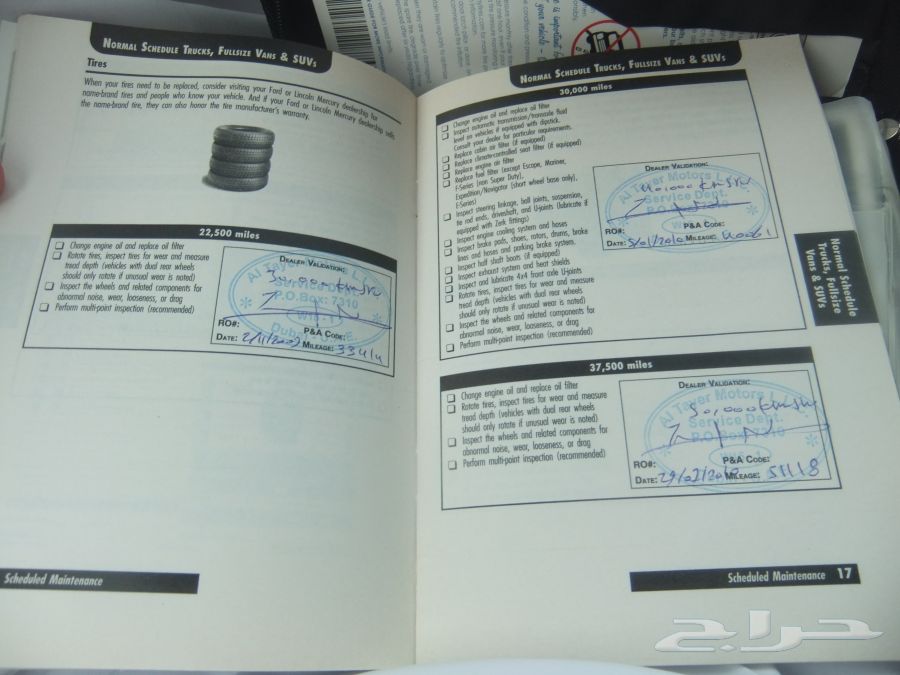 NORMAL SCHEDULE TRUCKS, FULLSIZE VANS & SUVS
Tires
When your tires need to be replaced, consider visiting your Ford or Lincoln Mercury dealership for
name-brand tires and people who know your vehicle. And if your Ford or Lincoln Mercury dealership sells
the name-brand tire, they can also honor the tire manufacturer's warranty.
22,500 miles
Change engine oil and replace oil filter
Rotate tires, inspect tires for wear and measure
tread depth (vehicles with dual rear wheels
should only rotate if unusual wear is noted)
Inspect the wheels and related components for
abnormal noise, wear, looseness, or drag
Perform multi-point inspection (recommended)
DEALER VALIDATION:
Al Tayer Motors
Service Dept.
P.O.Box: 7310
RO#:
P&A CODE:
DATE:
MILEAGE:
Scheduled Maintenance
NORMAL SCHEDULE TRUCKS, FULLSIZE VANS & SUVS
30,000 miles
Change engine oil and replace oil filter
Inspect automatic transmission/transaxle fluid
level on vehicles if equipped with dipstick.
Consult your dealer for particular requirements.
Replace cabin air filter (if equipped)
Replace climate-controlled seat filter (if equipped)
Replace engine air filter
Replace fuel filter (except Escape, Mariner,
F-Series (non Super Duty),
Expedition/Navigator (short wheel base only),
E-Series)
Inspect steering linkage, ball joints, suspension,
tie rod ends, driveshaft, and U-joints (lubricate if
equipped with Zerk fittings)
Inspect engine cooling system and hoses
Inspect brake pads, shoes, rotors, drums, brake
lines and hoses and parking brake system.
Inspect half shaft boots (if equipped)
Inspect exhaust system and heat shields
Inspect and lubricate 4x4 front axle U-joints
Rotate tires, inspect tires for wear and measure
tread depth (vehicles with dual rear wheels
should only rotate if unusual wear is noted)
Inspect the wheels and related components for
abnormal noise, wear, looseness, or drag
Perform multi-point inspection (recommended)
DEALER VALIDATION:
Al Tayer Motors
Service Dept.
RO#:
P&A CODE:
DATE:
MILEAGE:
37,500 miles
Change engine oil and replace oil filter
Rotate tires, inspect tires for wear and measure
tread depth (vehicles with dual rear wheels
should only rotate if unusual wear is noted)
Inspect the wheels and related components for
abnormal noise, wear, looseness, or drag
Perform multi-point inspection (recommended)
DEALER VALIDATION:
Al Tayer Motors
Service Dept.
P.O.Box: 7310
RO#:
P&A CODE:
DATE:
MILEAGE: 51118
Normal Schedule
Trucks, Fullsize
Vans & SUVs
Scheduled Maintenance 17
حراج